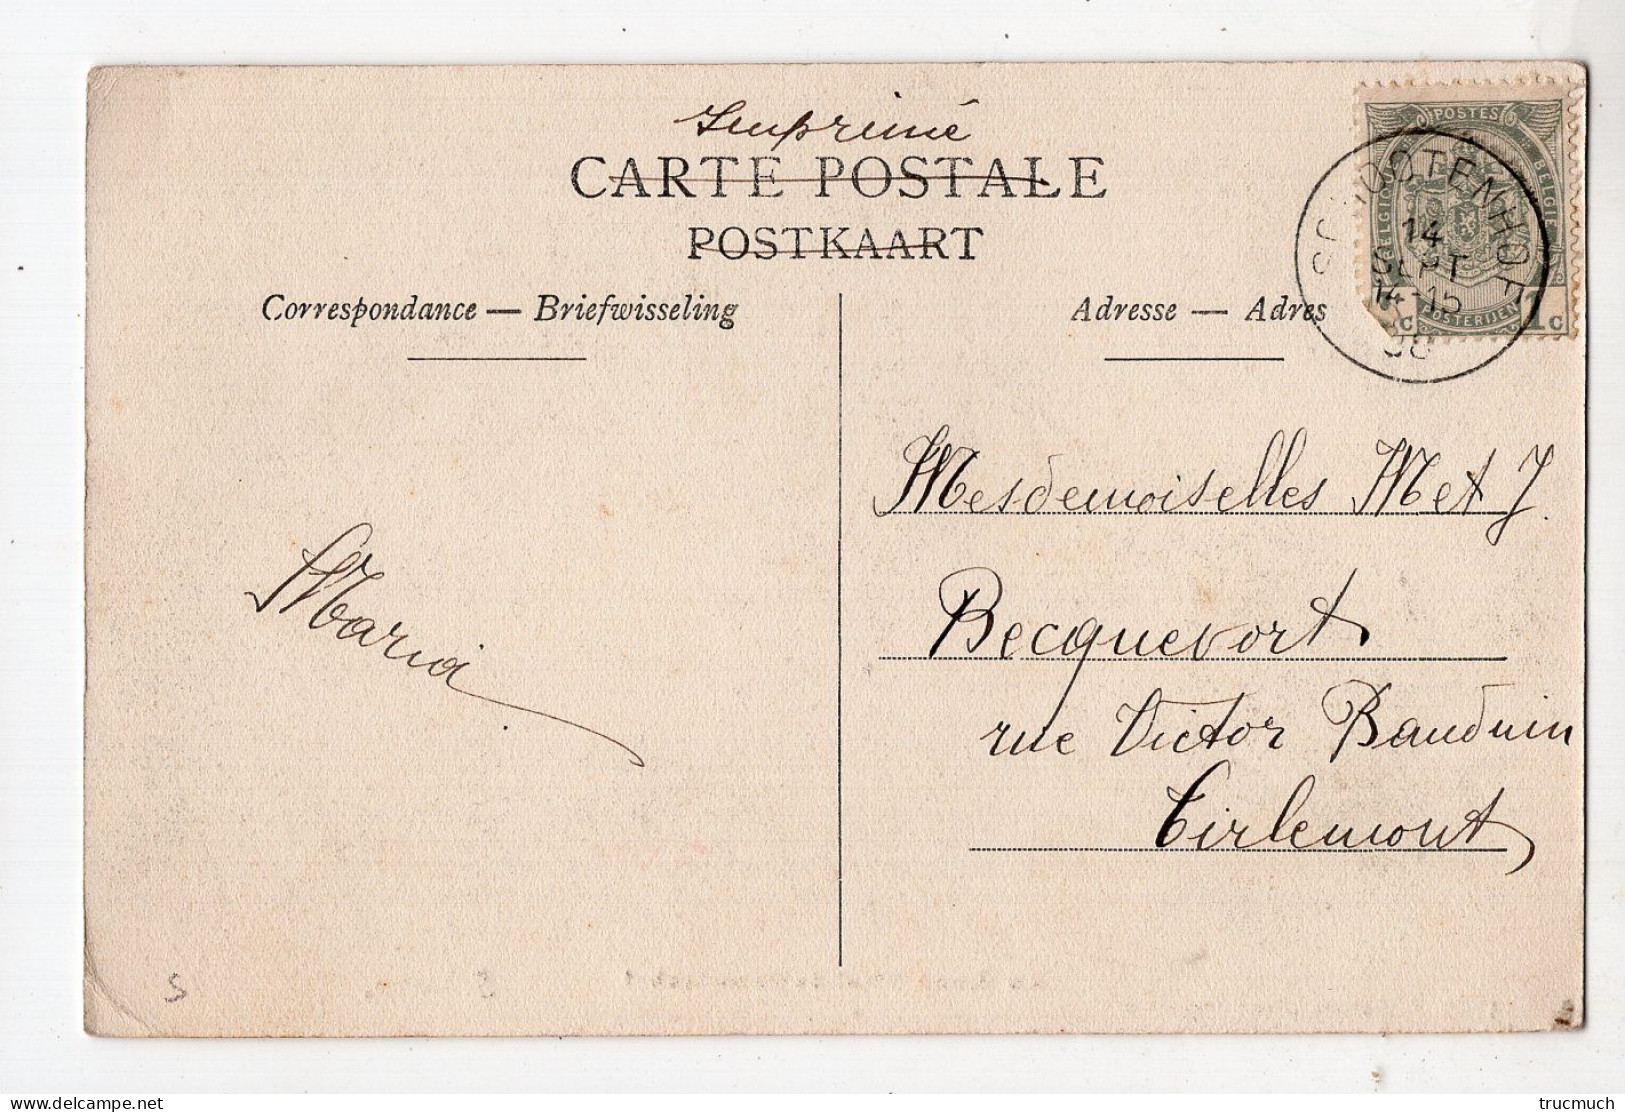 Imprimé
CARTE POSTALE
POSTKAART
Correspondance — Briefwisseling
Adresse — Adres
POSTES
BELGIQUE
BELGIË
POSTERIJEN
1 c
SCHOOTENHOF
14
SEPT
14-15
08
Mesdemoiselles M et J.
Becquevort
rue Victor Bauduin
Tirlemont
Maria
S
trucmuch